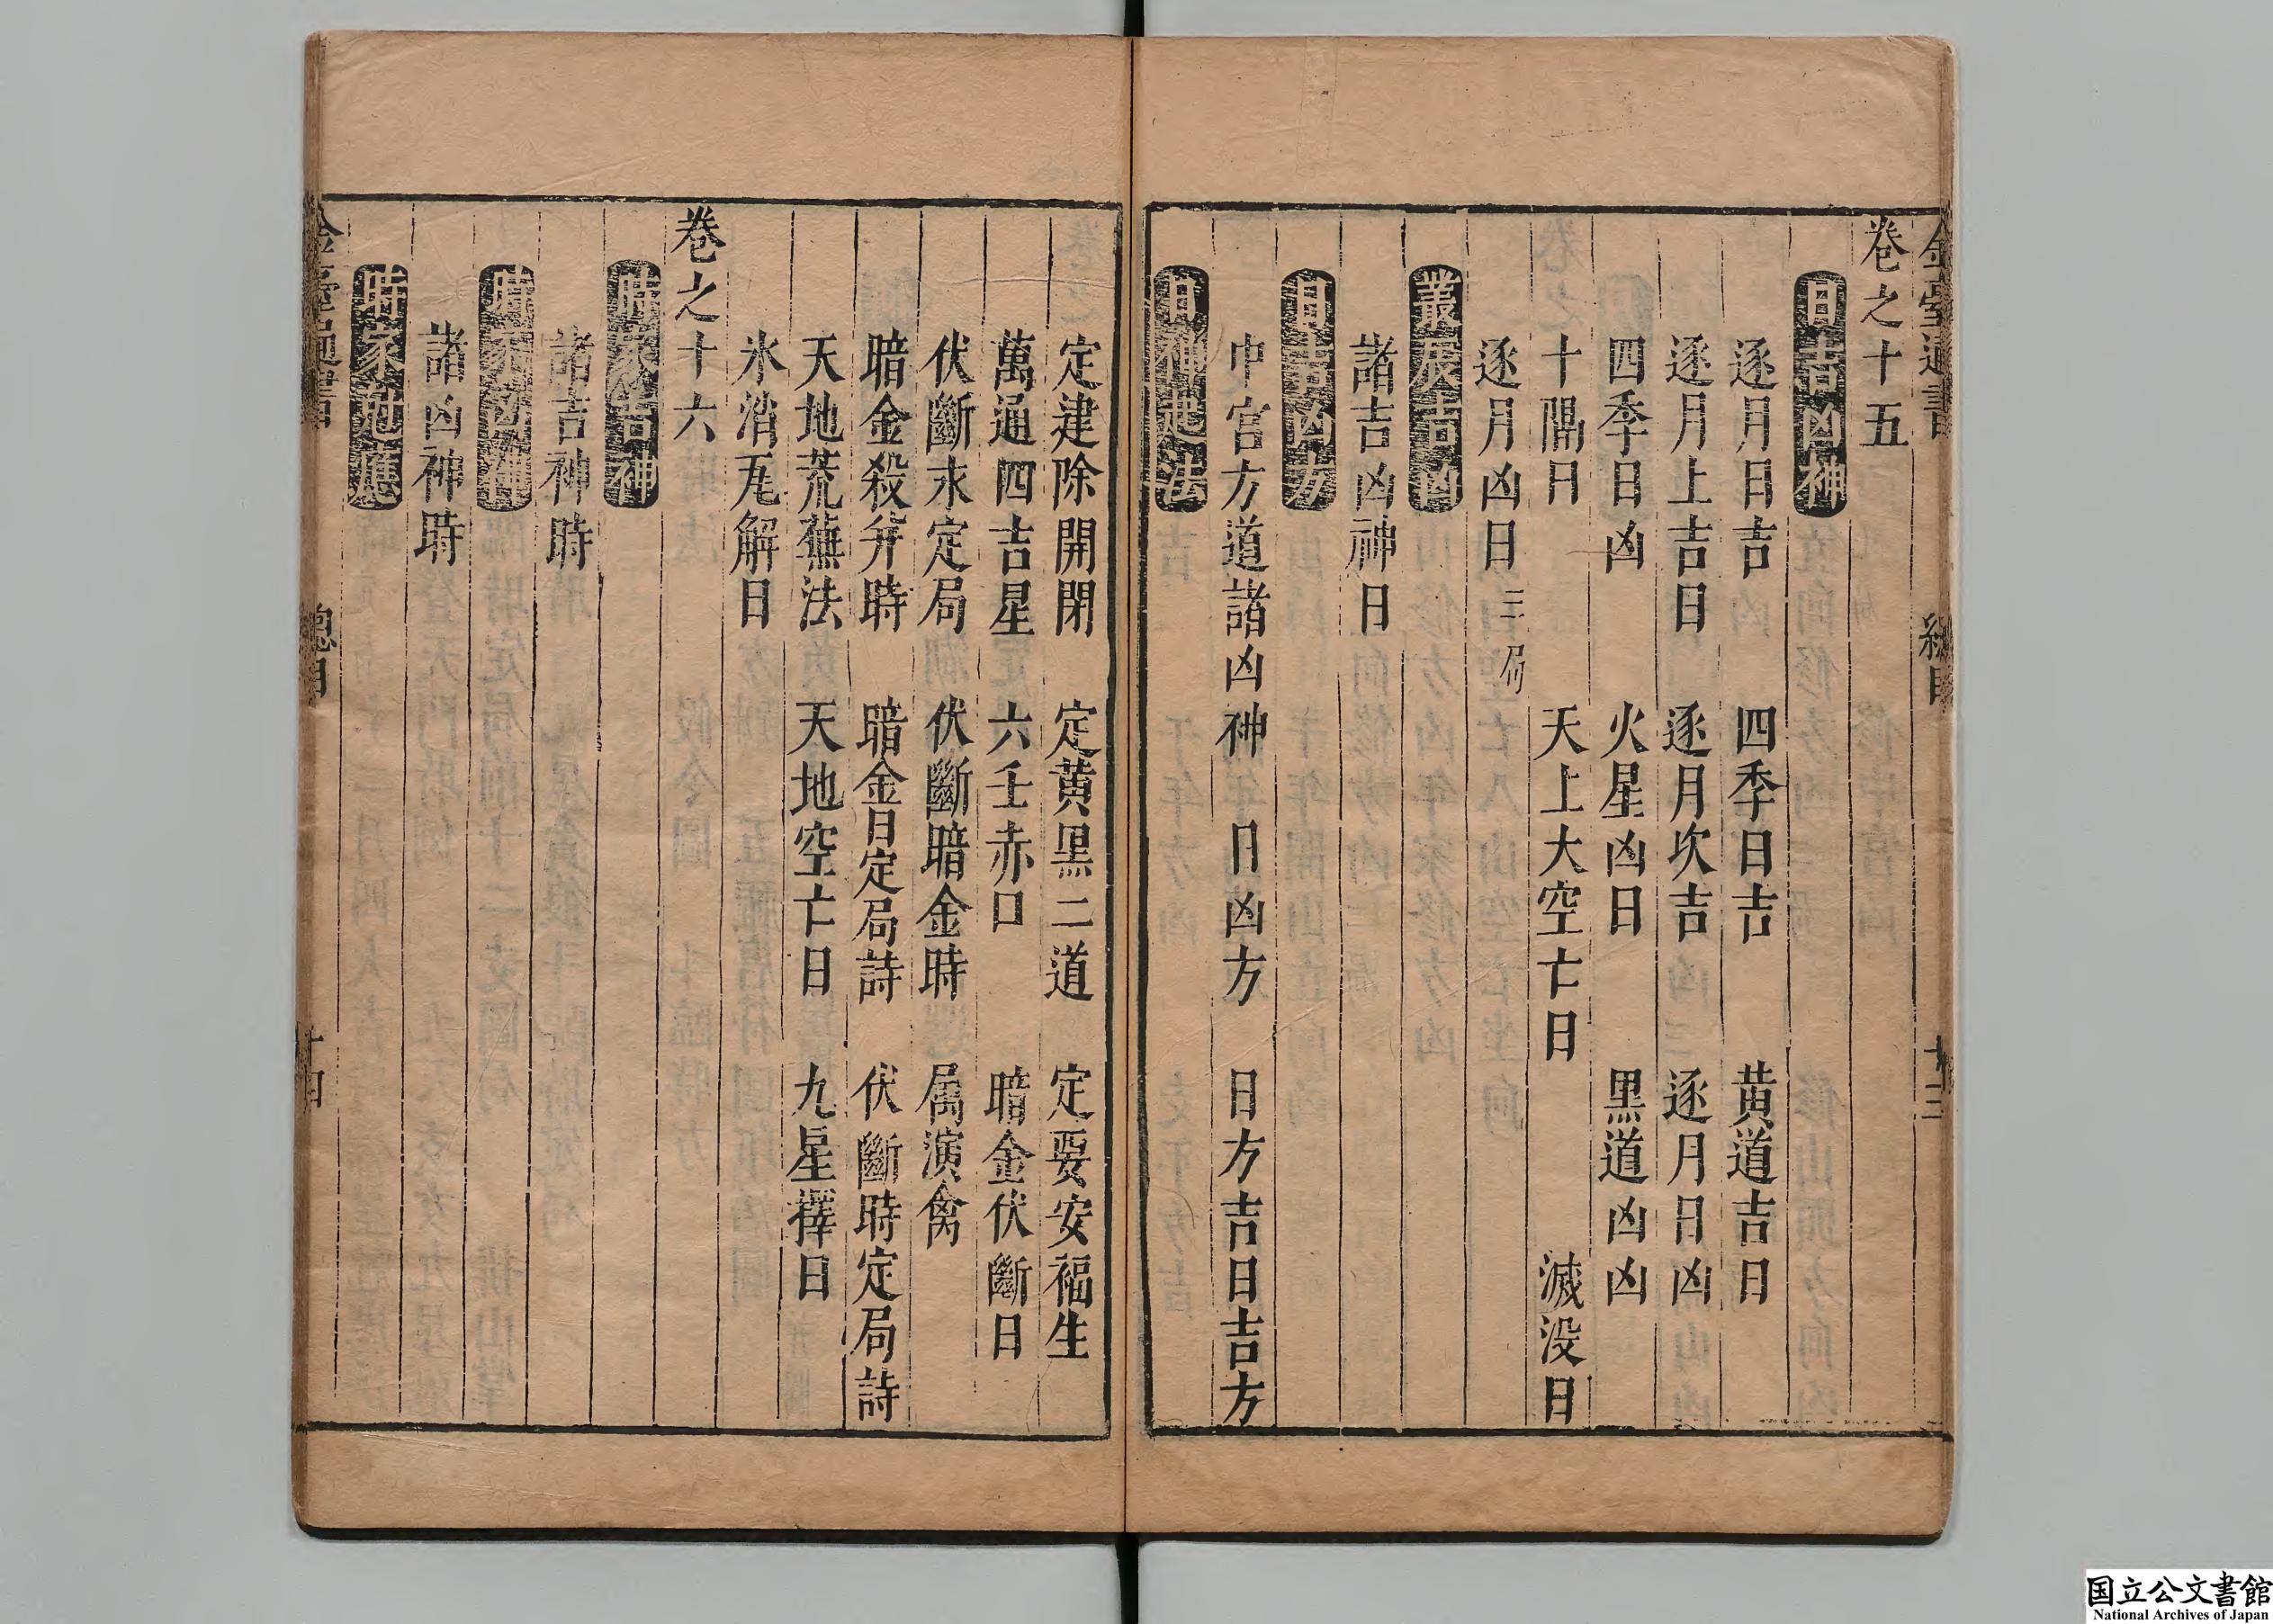 金臺通書 總目 十三
卷之十五
日吉凶神
逐月日吉 四季日吉 黄道吉日
逐月上吉日 逐月次吉 逐月日凶
四季日凶 火星凶日 黒道凶凶
十隔日 天上大空亡日 滅没日
逐月凶日三局
叢辰吉凶
諸吉凶神日
日吉凶方
中宫方道諸凶神 日凶方 日方吉日吉方
日神起法
定建除開閉 定黄黒二道 定要安福生
萬通四吉星 六壬赤口 暗金伏斷日
伏斷末定局 伏斷暗金時 属演禽
暗金殺并時 暗金日定局詩 伏斷時定局詩
天地荒蕪法 天地空亡日 九星擇日
氷消瓦解日
卷之十六
時家吉神
諸吉神時
時家凶神
諸凶神時
時家尅應
金臺通書 總目 十四
国立公文書館
National Archives of Japan